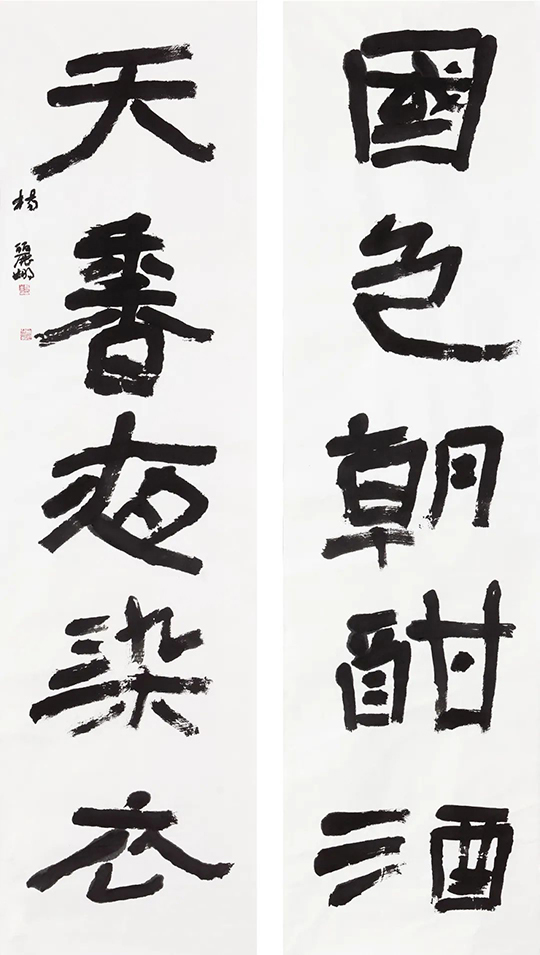 國色朝酣酒
天香夜染衣
楊麗娜